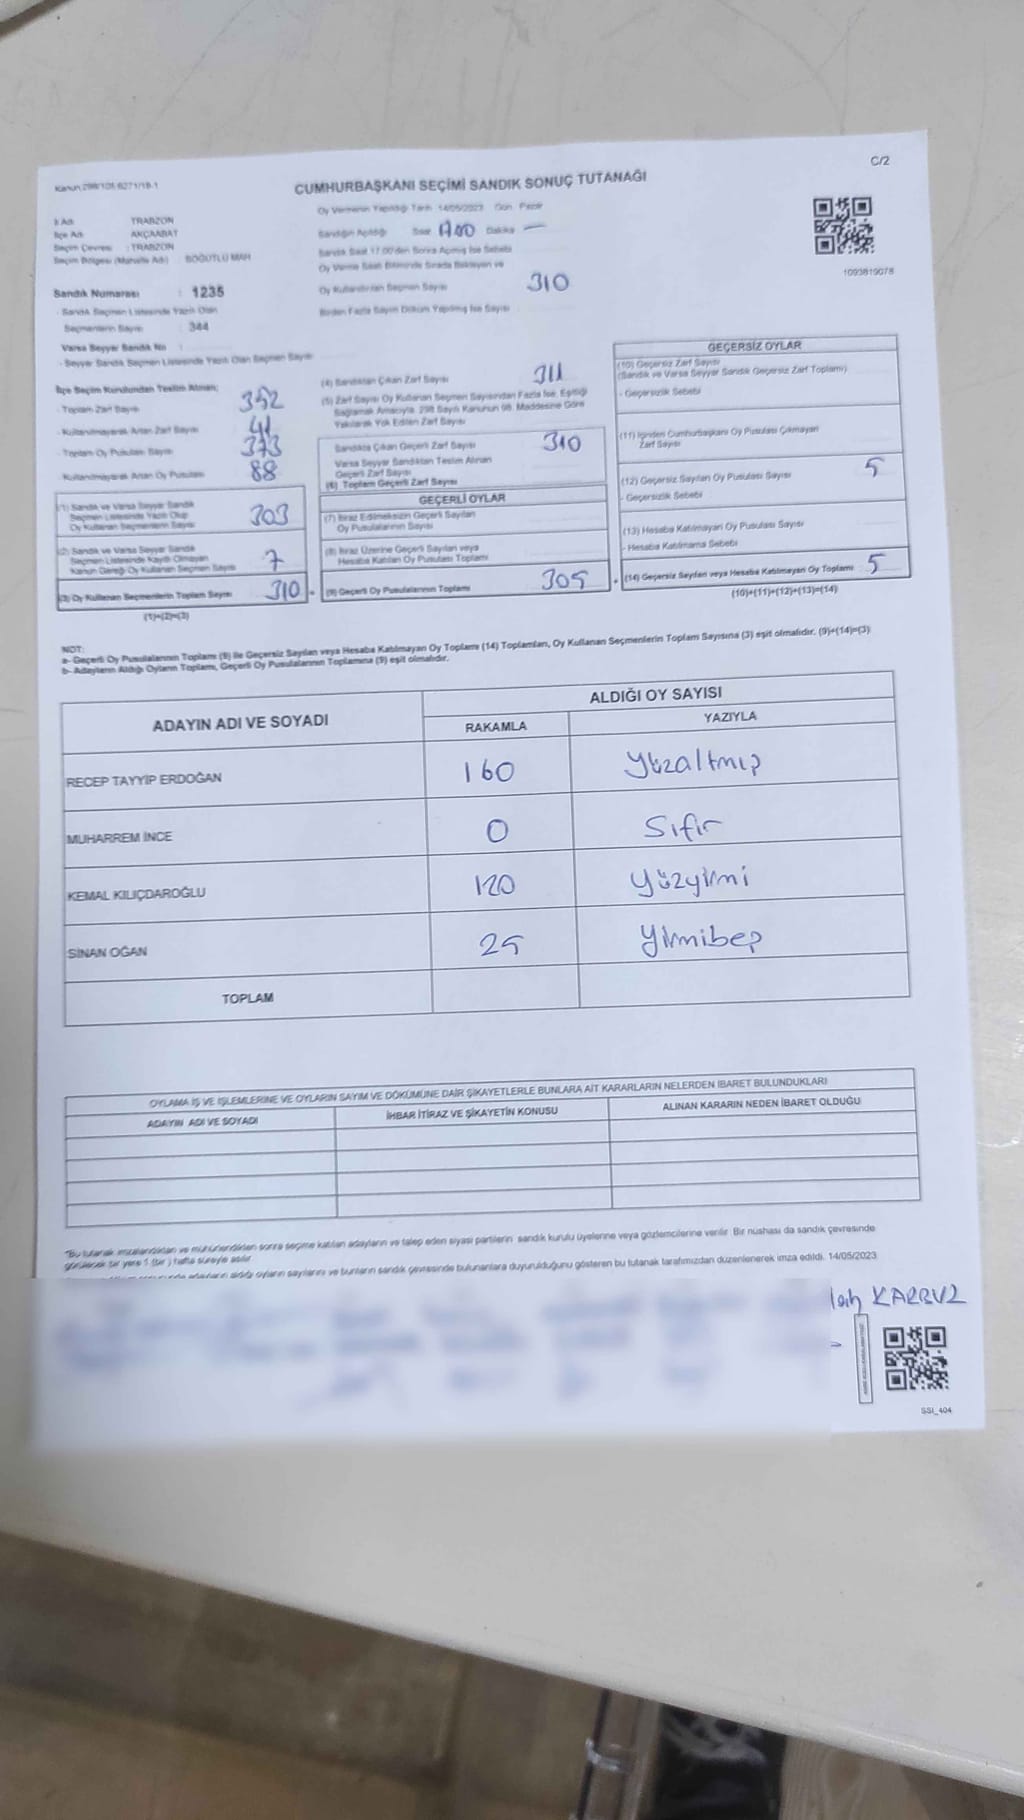 C/2
Kanun 298/101-6271/18-1
CUMHURBAŞKANI SEÇİMİ SANDIK SONUÇ TUTANAĞI
Oy Vermenin Yapıldığı Tarih 14/05/2023 Gün Pazar
İl Adı TRABZON
İlçe Adı AKÇAABAT
Seçim Çevresi : TRABZON
Seçim Bölgesi (Mahalle Adı) SÖĞÜTLÜ MAH
Sandığın Açıldığı Saat Dakika —
Sandık Saat 17.00'den Sonra Açılmış İse Sebebi
Oy Verme Saati Bitiminde Sırada Bekleyen ve
Oy Kullandırılan Seçmen Sayısı 310
Birden Fazla Sayım Döküm Yapılmış İse Sayısı
1093819078
Sandık Numarası : 1235
- Sandık Seçmen Listesinde Yazılı Olan
Seçmenlerin Sayısı : 344
Varsa Seyyar Sandık No :
- Seyyar Sandık Seçmen Listesinde Yazılı Olan Seçmen Sayısı
İlçe Seçim Kurulundan Teslim Alınan;
- Toplam Zarf Sayısı 352
- Kullanılmayarak Artan Zarf Sayısı 41
- Toplam Oy Pusulası Sayısı 373
- Kullanılmayarak Artan Oy Pusulası 88
(1) Sandık ve Varsa Seyyar Sandık
Seçmen Listesinde Yazılı Olup
Oy Kullanan Seçmenlerin Sayısı 303
(2) Sandık ve Varsa Seyyar Sandık
Seçmen Listesinde Kayıtlı Olmayan
Kanun Gereği Oy Kullanan Seçmen Sayısı 7
(3) Oy Kullanan Seçmenlerin Toplam Sayısı 310
(1)+(2)=(3)
(4) Sandıktan Çıkan Zarf Sayısı 311
(5) Zarf Sayısı Oy Kullanan Seçmen Sayısından Fazla İse, Eşitliği
Sağlamak Amacıyla, 298 Sayılı Kanunun 98. Maddesine Göre
Yakılarak Yok Edilen Zarf Sayısı
Sandıkta Çıkan Geçerli Zarf Sayısı 310
Varsa Seyyar Sandıktan Teslim Alınan
Geçerli Zarf Sayısı
(6) Toplam Geçerli Zarf Sayısı
GEÇERLİ OYLAR
(7) İtiraz Edilmeksizin Geçerli Sayılan
Oy Pusulalarının Sayısı
(8) İtiraz Üzerine Geçerli Sayılan veya
Hesaba Katılan Oy Pusulası Toplamı
(9) Geçerli Oy Pusulalarının Toplamı 305
GEÇERSİZ OYLAR
(10) Geçersiz Zarf Sayısı
(Sandık ve Varsa Seyyar Sandık Geçersiz Zarf Toplamı)
- Geçersizlik Sebebi
(11) İçinden Cumhurbaşkanı Oy Pusulası Çıkmayan
Zarf Sayısı
(12) Geçersiz Sayılan Oy Pusulası Sayısı 5
- Geçersizlik Sebebi
(13) Hesaba Katılmayan Oy Pusulası Sayısı
- Hesaba Katılmama Sebebi
(14) Geçersiz Sayılan veya Hesaba Katılmayan Oy Toplamı 5
(10)+(11)+(12)+(13)=(14)
NOT:
a- Geçerli Oy Pusulalarının Toplamı (9) ile Geçersiz Sayılan veya Hesaba Katılmayan Oy Toplamı (14) Toplamları, Oy Kullanan Seçmenlerin Toplam Sayısına (3) eşit olmalıdır. (9)+(14)=(3)
b- Adayların Aldığı Oyların Toplamı, Geçerli Oy Pusulalarının Toplamına (9) eşit olmalıdır.
ADAYIN ADI VE SOYADI
ALDIĞI OY SAYISI
RAKAMLA YAZIYLA
RECEP TAYYİP ERDOĞAN 160 Yüzaltmış
MUHARREM İNCE 0 Sıfır
KEMAL KILIÇDAROĞLU 120 Yüzyirmi
SİNAN OĞAN 25 Yirmibeş
TOPLAM
OYLAMA İŞ VE İŞLEMLERİNE VE OYLARIN SAYIM VE DÖKÜMÜNE DAİR ŞİKAYETLERLE BUNLARA AİT KARARLARIN NELERDEN İBARET BULUNDUKLARI
ADAYIN ADI VE SOYADI İHBAR İTİRAZ VE ŞİKAYETİN KONUSU ALINAN KARARIN NEDEN İBARET OLDUĞU
*Bu tutanak imzalandıktan ve mühürlendikten sonra seçime katılan adayların ve talep eden siyasi partilerin sandık kurulu üyelerine veya gözlemcilerine verilir. Bir nüshası da sandık çevresinde
görülecek bir yere 1 (bir ) hafta süreyle asılır.
adayların aldığı oyların sayılarını ve bunların sandık çevresinde bulunanlara duyurulduğunu gösteren bu tutanak tarafımızdan düzenlenerek imza edildi. 14/05/2023
KARBUZ
SSI_404